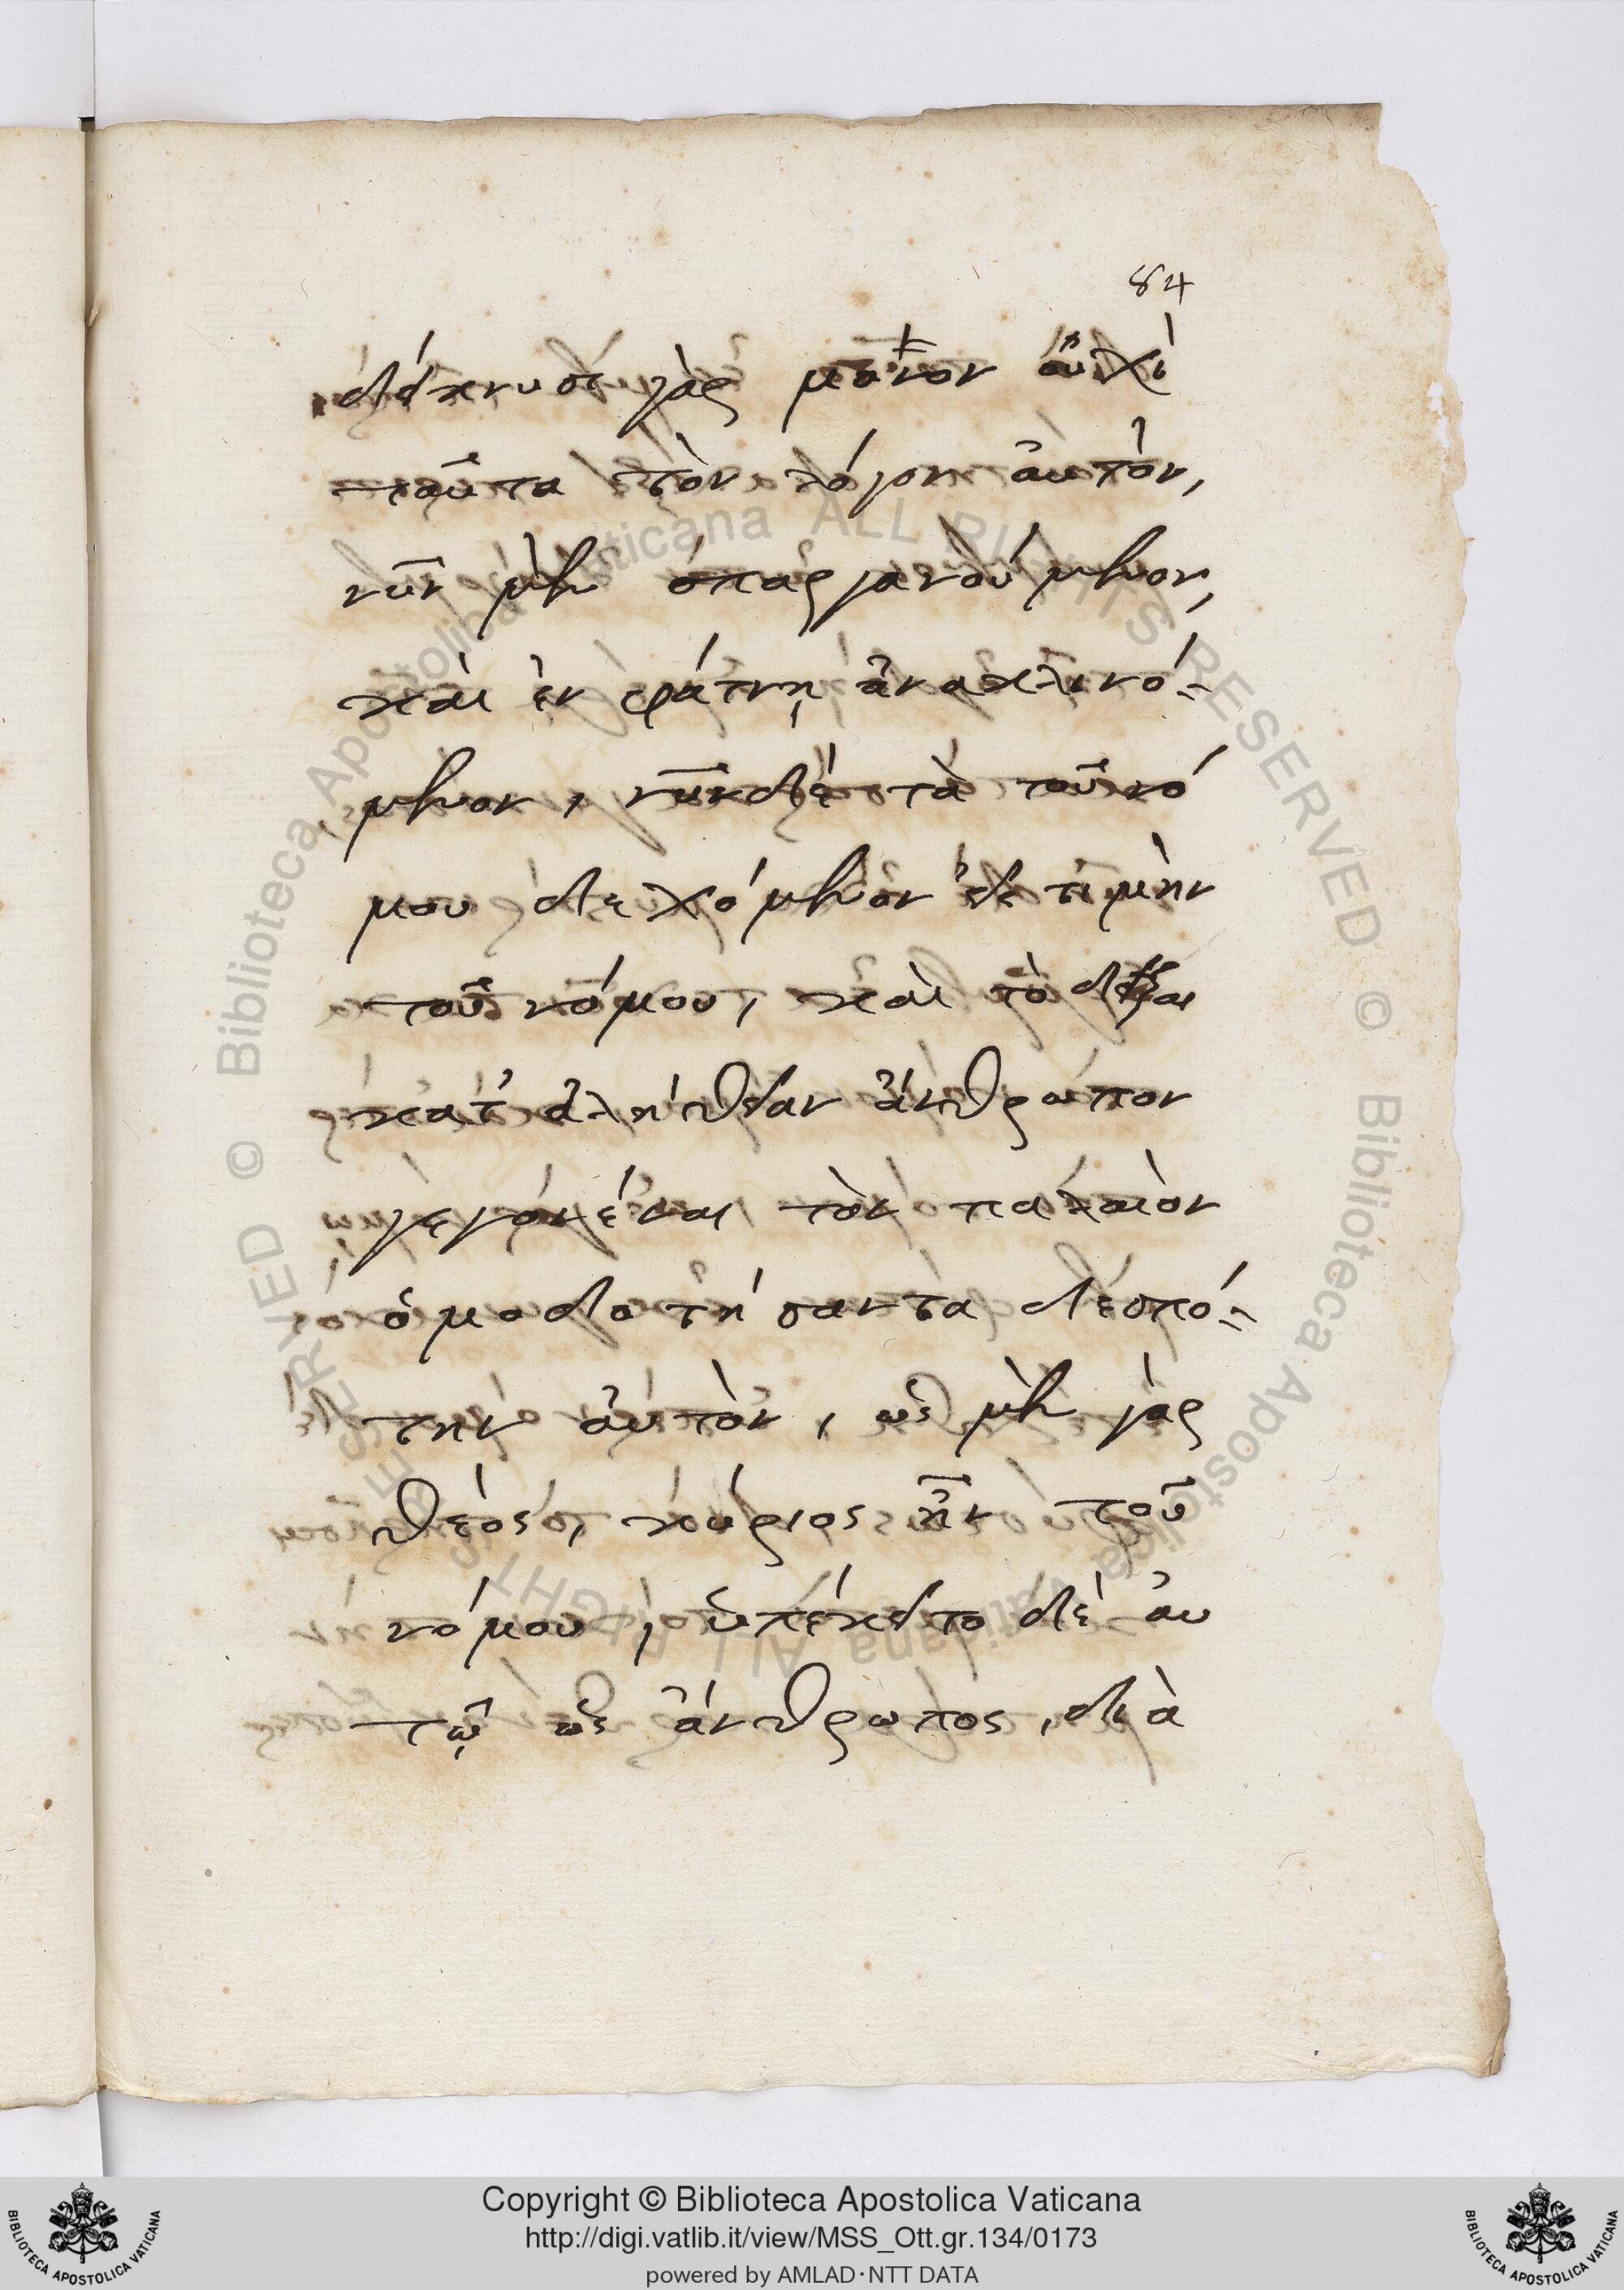 84
δείκνυσι γὰρ μόνον οὐχὶ
ταῦτα τὸν λόγον αὐτὸν,
νῦν μὲν σπαργανούμενον,
καὶ ἐν φάτνῃ ἀνακλινό-
μενον, νῦν δὲ τὰ τοῦ νό
μου δεχόμενον εἰς τιμὴν
τοῦ νόμου, καὶ τὸ δεῖξαι
κατ' ἀλήθειαν ἄνθρωπον
γεγονέναι τὸν παλαιὸν
ὁμοδοτήσαντα δεσπό-
την αὐτὸν, ὡς μὲν γὰρ
θεὸς, κύριος ἦν τοῦ
νόμου, ὑπέκειτο δὲ αὐ
τῷ ὡς ἄνθρωπος, διὰ
© Biblioteca Apostolica Vaticana ALL RIGHTS RESERVED © Biblioteca Apostolica Vaticana ALL RIGHTS RESERVED
Copyright © Biblioteca Apostolica Vaticana
http://digi.vatlib.it/view/MSS_Ott.gr.134/0173
powered by AMLAD·NTT DATA
BIBLIOTECA APOSTOLICA VATICANA
BIBLIOTECA APOSTOLICA VATICANA